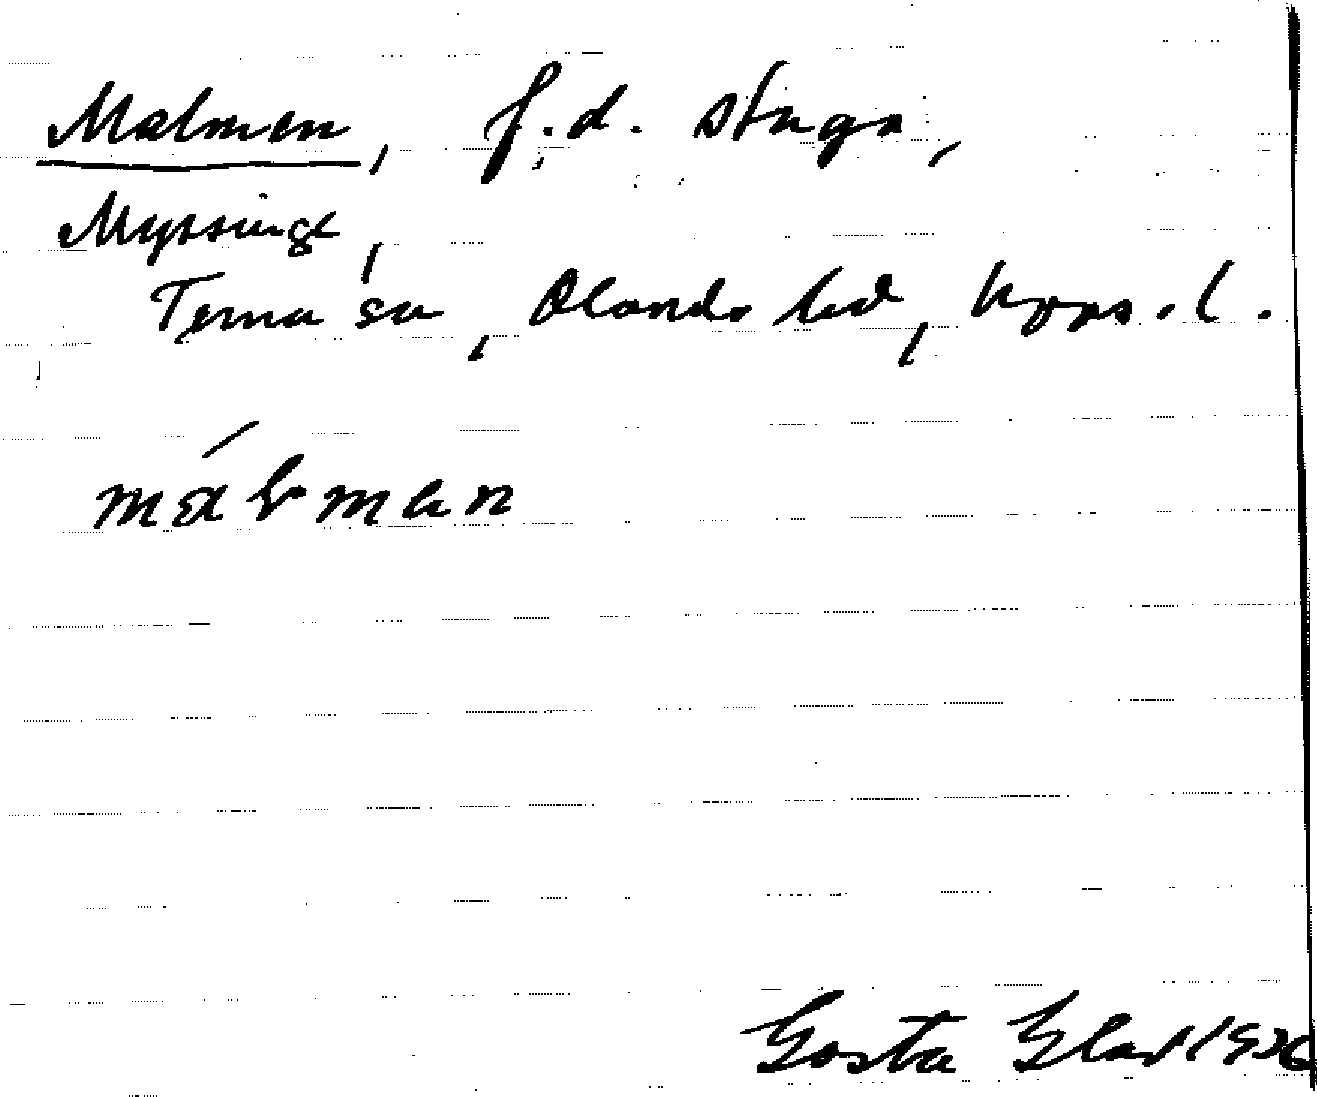 Malmen, f.d. stuga,
Myssinge,
Tema sn, Olands hd, Upps. l.
málman
Gösta Glad 1926